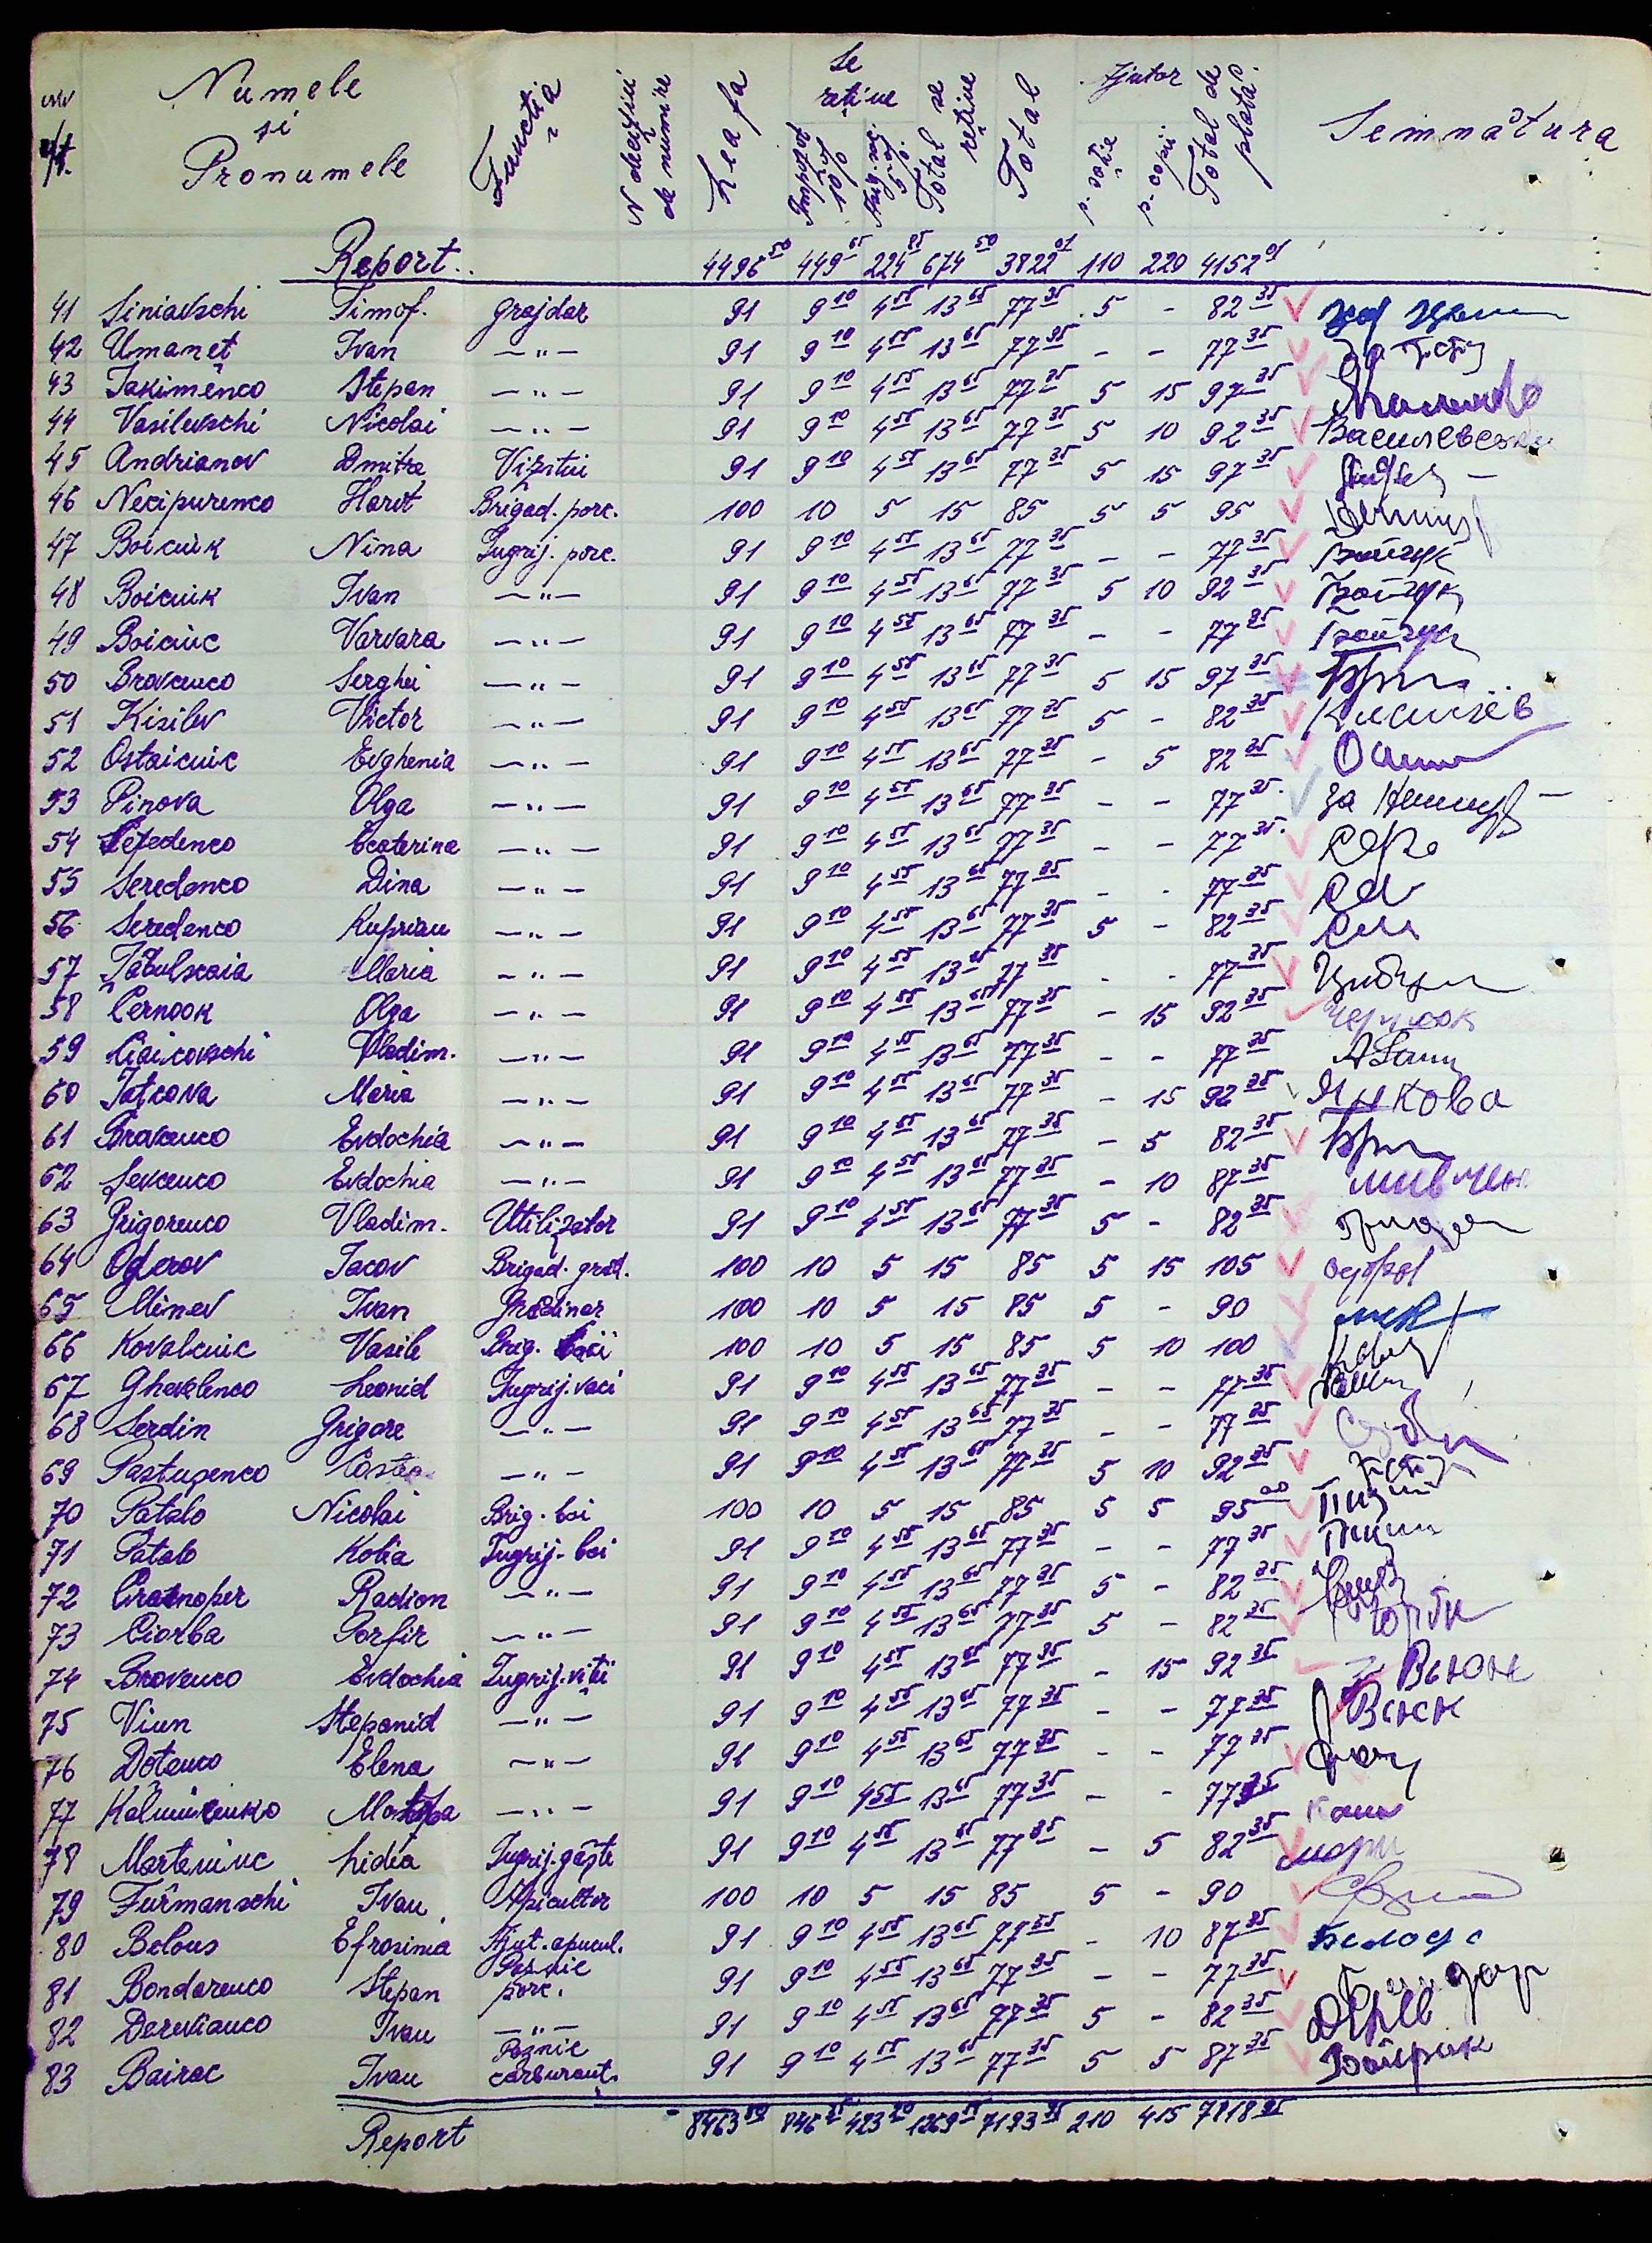 Numele
și
Pronumele
Funcția
N deciziei
de numire
Leafa
Se
rețiue
Impozit
10%
Asig. soc.
5%
Total se
rețiue
Total
Ajutor
p. soție
p. copii
Total de
plată.
Semnătura
Report.. 4496 50 449 65 224 85 674 50 3822 01 110 220 4152 01
41 Siniavschi Timof. grajdar 91 9 10 4 55 13 65 77 35 5 - 82 35
42 Umaneț Ivan —"— 91 9 10 4 55 13 65 77 35 - - 77 35
43 Iakimenco Stepan —"— 91 9 10 4 55 13 65 77 35 5 15 97 35
44 Vasilevschi Nicolai —"— 91 9 10 4 55 13 65 77 35 5 10 92 35 Василевский
45 Andrianov Dmitre Vizitiu 91 9 10 4 55 13 65 77 35 5 15 97 35
46 Necipurenco Harit Brigad. porc. 100 10 5 15 85 5 5 95
47 Boiciuk Nina Ingrij. porc. 91 9 10 4 55 13 65 77 35 - - 77 35 Бойчук
48 Boiciuk Ivan —"— 91 9 10 4 55 13 65 77 35 5 10 92 35 Бойчук
49 Boiciuc Varvara —"— 91 9 10 4 55 13 65 77 35 - - 77 35 Бойчук
50 Bravcenco Serghei —"— 91 9 10 4 55 13 65 77 35 5 15 97 35
51 Kisilev Victor —"— 91 9 10 4 55 13 65 77 35 5 - 82 35 Кисилёв
52 Ostaiciuc Evghenia —"— 91 9 10 4 55 13 65 77 35 - 5 82 35
53 Pinova Olga —"— 91 9 10 4 55 13 65 77 35 - - 77 35 за
54 Ecaterina —"— 91 9 10 4 55 13 65 77 35 - - 77 35
55 Seredenco Dina —"— 91 9 10 4 55 13 65 77 35 - - 77 35
56 Seredenco Kuprian —"— 91 9 10 4 55 13 65 77 35 5 - 82 35
57 Țabulscaia Maria —"— 91 9 10 4 55 13 65 77 35 - - 77 35
58 Cernook Olga —"— 91 9 10 4 55 13 65 77 35 - 15 92 35 Чернook
59 Ciaicovschi Vladim. —"— 91 9 10 4 55 13 65 77 35 - - 77 35
60 Iatcova Maria —"— 91 9 10 4 55 13 65 77 35 - 15 92 35 Яцкова
61 Bravcenco Evdochia —"— 91 9 10 4 55 13 65 77 35 - 5 82 35
62 Șevcenco Evdochia —"— 91 9 10 4 55 13 65 77 35 - 10 87 35
63 Grigorenco Vladim. Utilizator 91 9 10 4 55 13 65 77 35 5 - 82 35
64 Iacov Brigad. grăd. 100 10 5 15 85 5 15 105
65 Minev Ivan Grădinar 100 10 5 15 85 5 - 90
66 Kovalciuc Vasile Brig. 100 10 5 15 85 5 10 100
67 Ghavlenco Leonid Ingrij. vaci 91 9 10 4 55 13 65 77 35 - - 77 35
68 Serdin Grigore —"— 91 9 10 4 55 13 65 77 35 - - 77 35
69 Pastușenco Costea —"— 91 9 10 4 55 13 65 77 35 5 10 92 35
70 Patalo Nicolai Brig. boi 100 10 5 15 85 5 5 95 00
71 Patalo Kolia Ingrij. boi 91 9 10 4 55 13 65 77 35 - - 77 35
72 Radion —"— 91 9 10 4 55 13 65 77 35 5 - 82 35
73 Ciorba Porfir —"— 91 9 10 4 55 13 65 77 35 5 - 82 35
74 Brovenco Evdochia Ingrij. viței 91 9 10 4 55 13 65 77 35 - 15 92 35 Вьюн
75 Viun Stepanid —"— 91 9 10 4 55 13 65 77 35 - - 77 35
76 Doțenco Elena —"— 91 9 10 4 55 13 65 77 35 - - 77 35
77 —"— 91 9 10 4 55 13 65 77 35 - - 77 35
78 Marteniuc Lidia Ingrij. gâște 91 9 10 4 55 13 65 77 35 - 5 82 35
79 Furmanschi Ivan Apicultor 100 10 5 15 85 5 - 90
80 Belous Efrosinia Ajut. apicul. 91 9 10 4 55 13 65 77 35 - 10 87 35 Белоус
81 Bondarenco Stepan Paznic porc. 91 9 10 4 55 13 65 77 35 - - 77 35
82 Derevianco Ivan —"— 91 9 10 4 55 13 65 77 35 5 - 82 35
83 Bairac Ivan Paznic carburant. 91 9 10 4 55 13 65 77 35 5 5 87 35 Байрак
Report 8463 50 846 35 423 20 1269 55 7193 95 210 415 7818 95